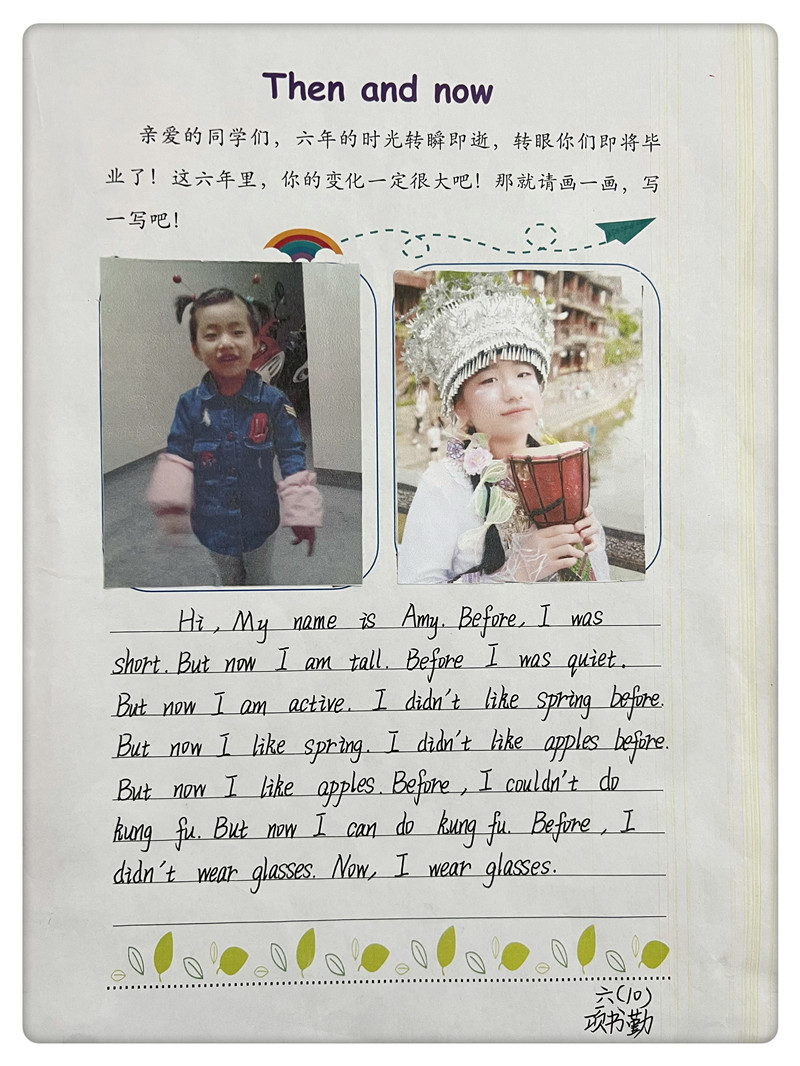 Then and now
亲爱的同学们，六年的时光转瞬即逝，转眼你们即将毕
业了！这六年里，你的变化一定很大吧！那就请画一画，写
一写吧！
Hi, My name is Amy. Before, I was
short. But now I am tall. Before I was quiet.
But now I am active. I didn't like spring before.
But now I like spring. I didn't like apples before.
But now I like apples. Before, I couldn't do
kung fu. But now I can do kung fu. Before, I
didn't wear glasses. Now, I wear glasses.
六(10)
项书勤